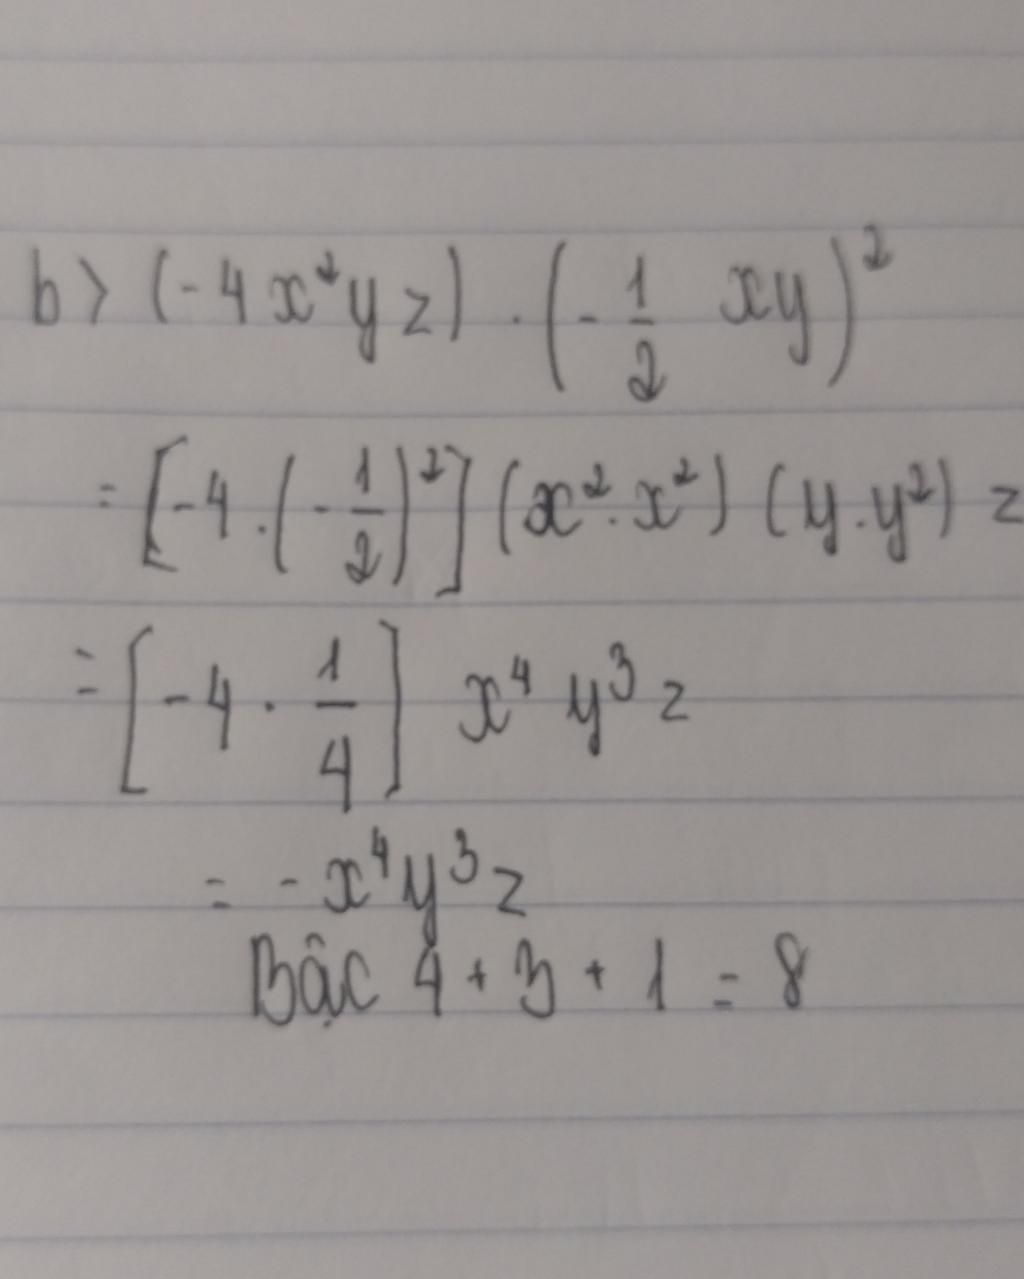 b> (-4x²yz) . (-1/2 xy)²
= [-4.(-1/2)²] (x².x²) (y.y²) z
= [-4 . 1/4] x⁴ y³ z
= -x⁴y³z
Bậc 4 + 3 + 1 = 8